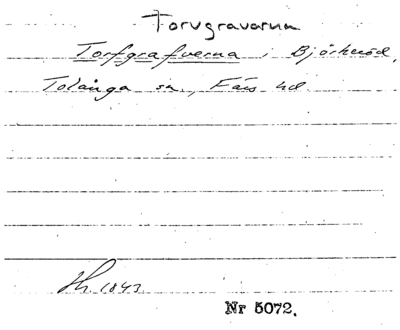 Torvgravarna
Torfgrafverna i Björkeröd,
Tolånga sn., Färs hd.
Hh. 1843.
Nr 5072.